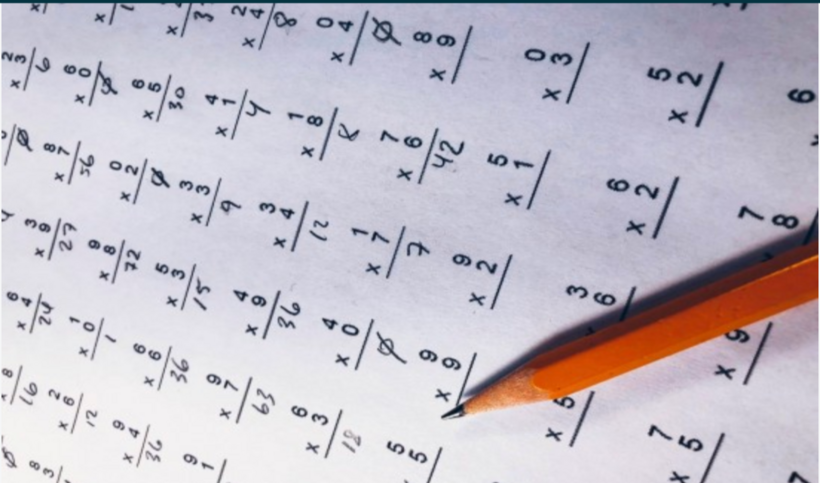 2
x 3
6
8
16
6
x 4
24
3
x 9
27
8
x 7
56
6
x 0
0
8 2 1 9 0 6
3 x 6 x 0 x 8 x 2 x 5
12 1 72 0 30
9 6 5 3 4 2
x 4 x 6 x 3 x 3 x 1 x 4
36 36 15 9 4 8
9 4 3 1 0
x 7 x 9 x 4 x 8 x 4
63 36 12 8 0
6 4 1 7 8
x 3 x 0 x 7 x 6 x 9
18 0 7 42
5 9 9 5 0
5 x 9 x 2 x 1 x 3
3 6 5
x 5 6 x 2 x 2
7 7 6
x 5 x 9 8